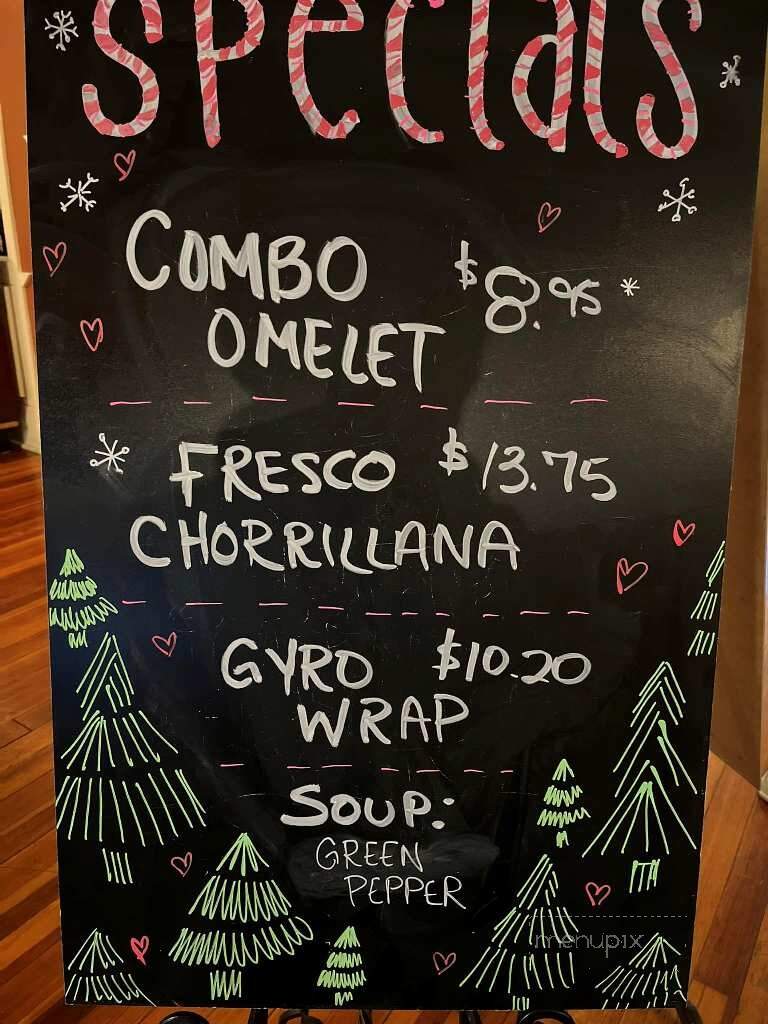 Specials
COMBO $8.95
OMELET
FRESCO $13.75
CHORRILLANA
GYRO $10.20
WRAP
SOUP:
GREEN
PEPPER
menupix